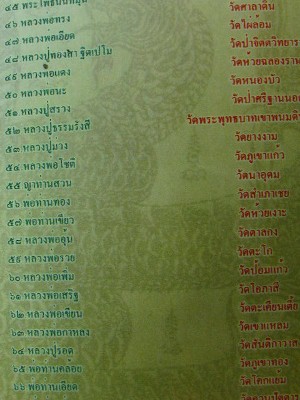 ๔๕ พระโพธินันทมุนี วัดศาลาดิน
๔๖ หลวงพ่อทรง วัดไผ่ล้อม
๔๗ หลวงพ่อเอียด วัดป่าจิตตวิทยา
๔๘ หลวงปู่ทองสา ฐิตเปโม วัดห้วยฉลองรา
๔๙ หลวงพ่อแดง วัดหนองบัว
๕๐ หลวงพ่อนะ วัดป่าศรีฐานนอ
๕๑ หลวงปู่สรวง วัดพระพุทธบาทเขาพนมดิ
๕๒ หลวงปู่ธรรมรังสี วัดยางงาม
๕๓ หลวงปู่ม่วง วัดภูเขาแก้ว
๕๔ หลวงพ่อโชติ วัดนาอุดม
๕๕ ญาท่านสวน วัดสำเภาเชย
๕๖ พ่อท่านทอง วัดห้วยเงาะ
๕๗ พ่อท่านเขียว วัดตาลกง
๕๘ หลวงพ่ออุ้น วัดตะโก
๕๙ หลวงพ่อรวย วัดป้อมแก้ว
๖๐ หลวงพ่อเพิ่ม วัดโอภาสี
๖๑ หลวงพ่อเสริฐ วัดตะเคียนเตี้ย
๖๒ หลวงพ่อเขียน วัดเขาแหลม
๖๓ หลวงพ่อกาหลง วัดสันติกาวาส
๖๔ หลวงปู่รอด วัดภูเขาทอง
๖๕ พ่อท่านคล้อย วัดโคกแย้ม
๖๖ พ่อท่านเอียด